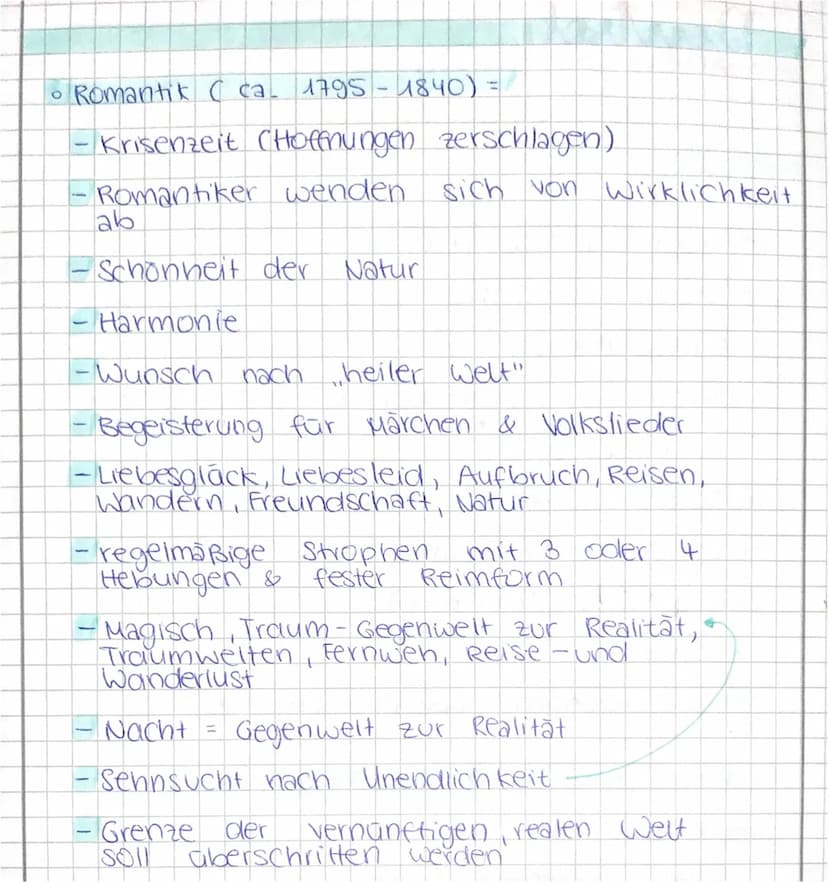 ◦ Romantik (ca. 1795-1840) =
- Krisenzeit (Hoffnungen zerschlagen)
- Romantiker wenden sich von Wirklichkeit
ab
- Schönheit der Natur
- Harmonie
- Wunsch nach „heiler Welt"
- Begeisterung für Märchen & Volkslieder
- Liebesglück, Liebesleid, Aufbruch, Reisen,
Wandern, Freundschaft, Natur
- regelmäßige Strophen mit 3 oder 4
Hebungen & fester Reimform
- Magisch, Traum-Gegenwelt zur Realität,
Traumwelten, Fernweh, Reise-und
Wanderlust
- Nacht = Gegenwelt zur Realität
- Sehnsucht nach Unendlichkeit
- Grenze der vernünftigen, realen Welt
soll überschritten werden